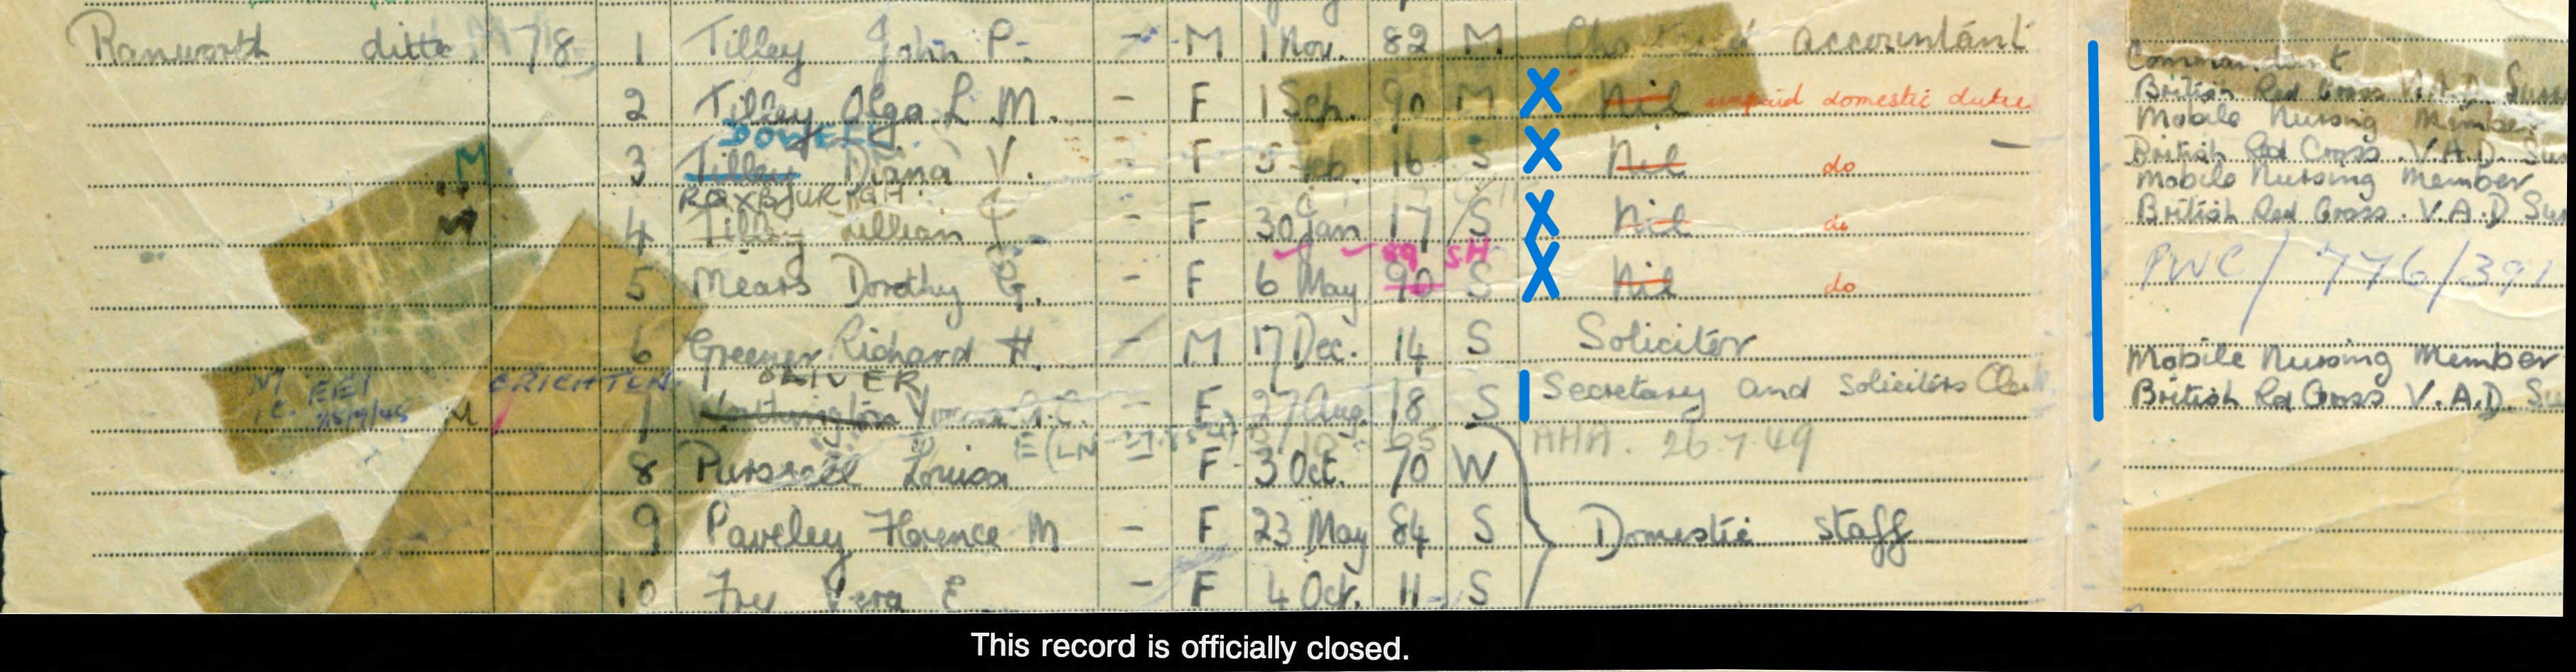 Ranworth ditto 78 1 Tilley John P. - M 1 Nov. 82 M accountant
Commandant
2 Tilley Olga L. M. - F 1 Sep. 90 M Nil unpaid domestic duties
British Red Cross V.A.D.
DOWELL
Mobile Nursing Member
M 3 Tilley Diana V. - F 5 Feb. 16 S Nil do
British Red Cross. V.A.D.
ROXBURGH
Mobile Nursing Member
4 Tilley Lillian - F 30 Jan 17 S Nil do
British Red Cross. V.A.D
89 SH
5 Mears Dorothy G. - F 6 May 90 S Nil do
PWC/776/391
6 Greener Richard H. - M 17 Dec. 14 S Solicitor
Mobile Nursing Member
OLIVER
CRICHTEN
25/9/45 M 7 Worthington - F 27 Aug. 18 S Secretary and Solicitors
British Red Cross V.A.D.
HHA. 26-7-49
8 Louisa - F 3 Oct. 70 W
9 Paveley Florence M - F 23 May 84 S Domestic Staff
10 Fry Vera E. - F 4 Oct. 11 S
This record is officially closed.